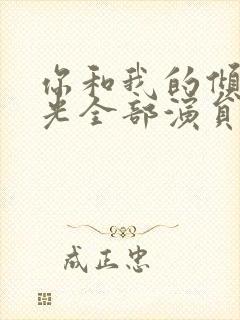 你和我的倾
光全部演员
成正忠